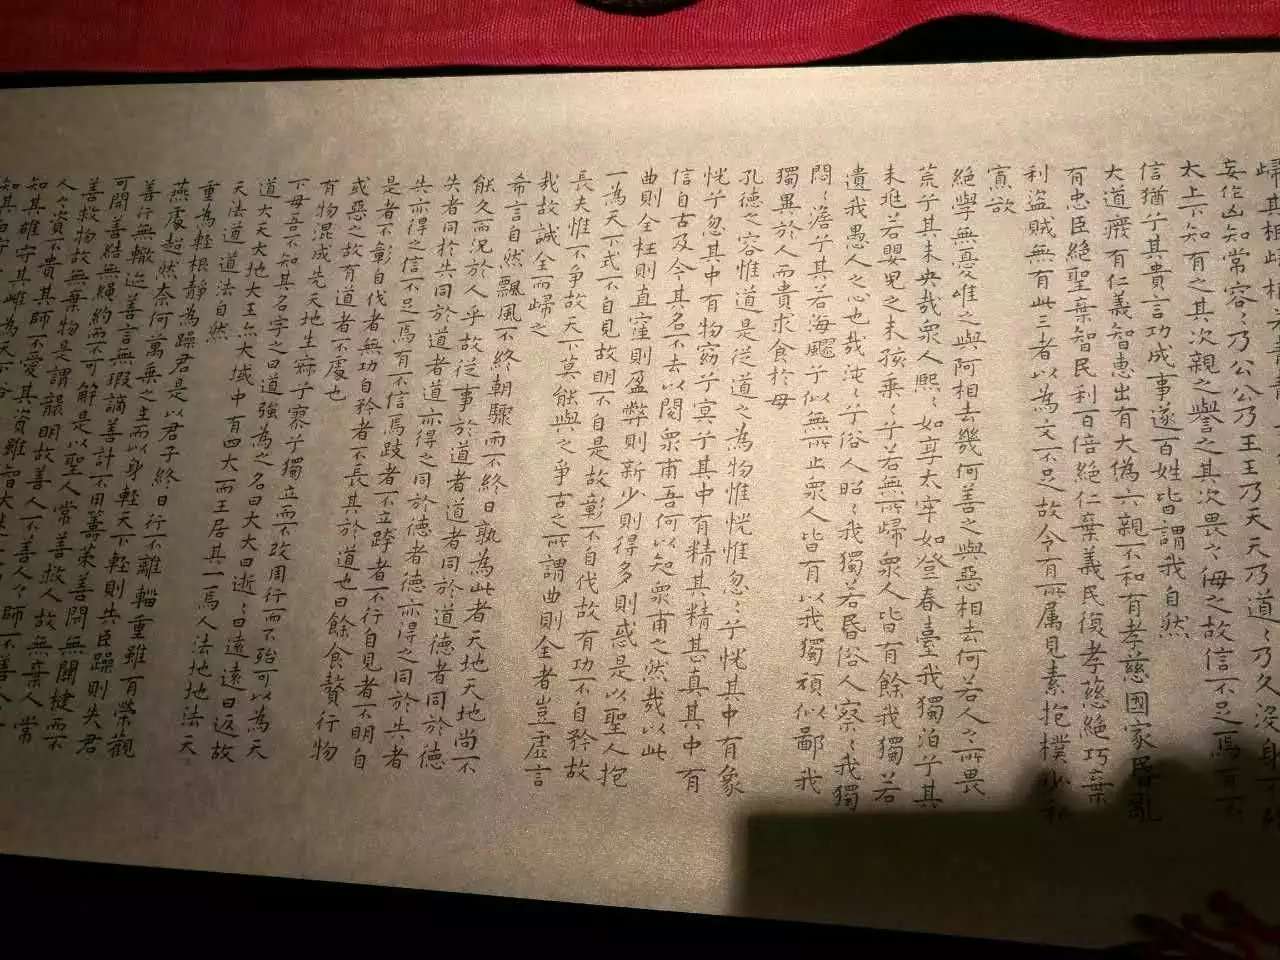 妄作凶知常容〻乃公公乃王王乃天天乃道〻乃久沒身不
太上下知有之其次親之譽之其次畏〻侮之故信不足焉有不
信猶兮其貴言功成事遂百姓皆謂我自然
大道廢有仁義智惠出有大偽六親不和有孝慈國家昏亂
有忠臣絕聖棄智民利百倍絕仁棄義民復孝慈絕巧棄
利盜賊無有此三者以為文不足故令有所属見素抱樸少私
寡欲
絕學無憂唯之與阿相去幾何善之與惡相去何若人之所畏
荒兮其未央哉衆人熙〻如享太牢如登春臺我獨泊兮其
未兆若嬰兒之未孩乘〻兮若無所歸衆人皆有餘我獨若
遺我愚人之心也哉沌〻兮俗人昭〻我獨若昏俗人察〻我獨
悶〻澹兮其若海飂兮似無所止衆人皆有以我獨頑似鄙我
獨異於人而貴求食於母
孔德之容惟道是從道之為物惟恍惟忽〻兮恍其中有象
恍兮忽其中有物窈兮冥兮其中有精其精甚真其中有
信自古及今其名不去以閱衆甫吾何以知衆甫之然哉以此
曲則全枉則直窪則盈弊則新少則得多則惑是以聖人抱
一為天下式不自見故明不自是故彰不自伐故有功不自矜故
長夫惟不爭故天下莫能與之爭古之所謂曲則全者豈虛言
哉故誠全而歸之
希言自然飄風不終朝驟雨不終日孰為此者天地天地尚不
能久而況於人乎故從事於道者道者同於道德者同於德
失者同於失同於道者道亦得之同於德者德亦得之同於失者
失亦得之信不足焉有不信焉跂者不立跨者不行自見者不明自
是者不彰自伐者無功自矜者不長其於道也曰餘食贅行物
或惡之故有道者不處也
有物混成先天地生寂兮寥兮獨立而不改周行而不殆可以為天
下母吾不知其名字之曰道強為之名曰大大曰逝〻曰遠遠曰返故
道大天大地大王亦大域中有四大而王居其一焉人法地地法天
天法道道法自然
重為輕根靜為躁君是以君子終日行不離輜重雖有榮觀
燕處超然奈何萬乘之主而以身輕天下輕則失臣躁則失君
善行無轍迹善言無瑕謫善計不用籌策善閉無關楗而不
可開善結無繩約而不可解是以聖人常善救人故無棄人常
善救物故無棄物是謂襲明故善人不善人〻師不善人
人〻資不貴其師不愛其資雖智大迷
知其雄守其雌為天下谷